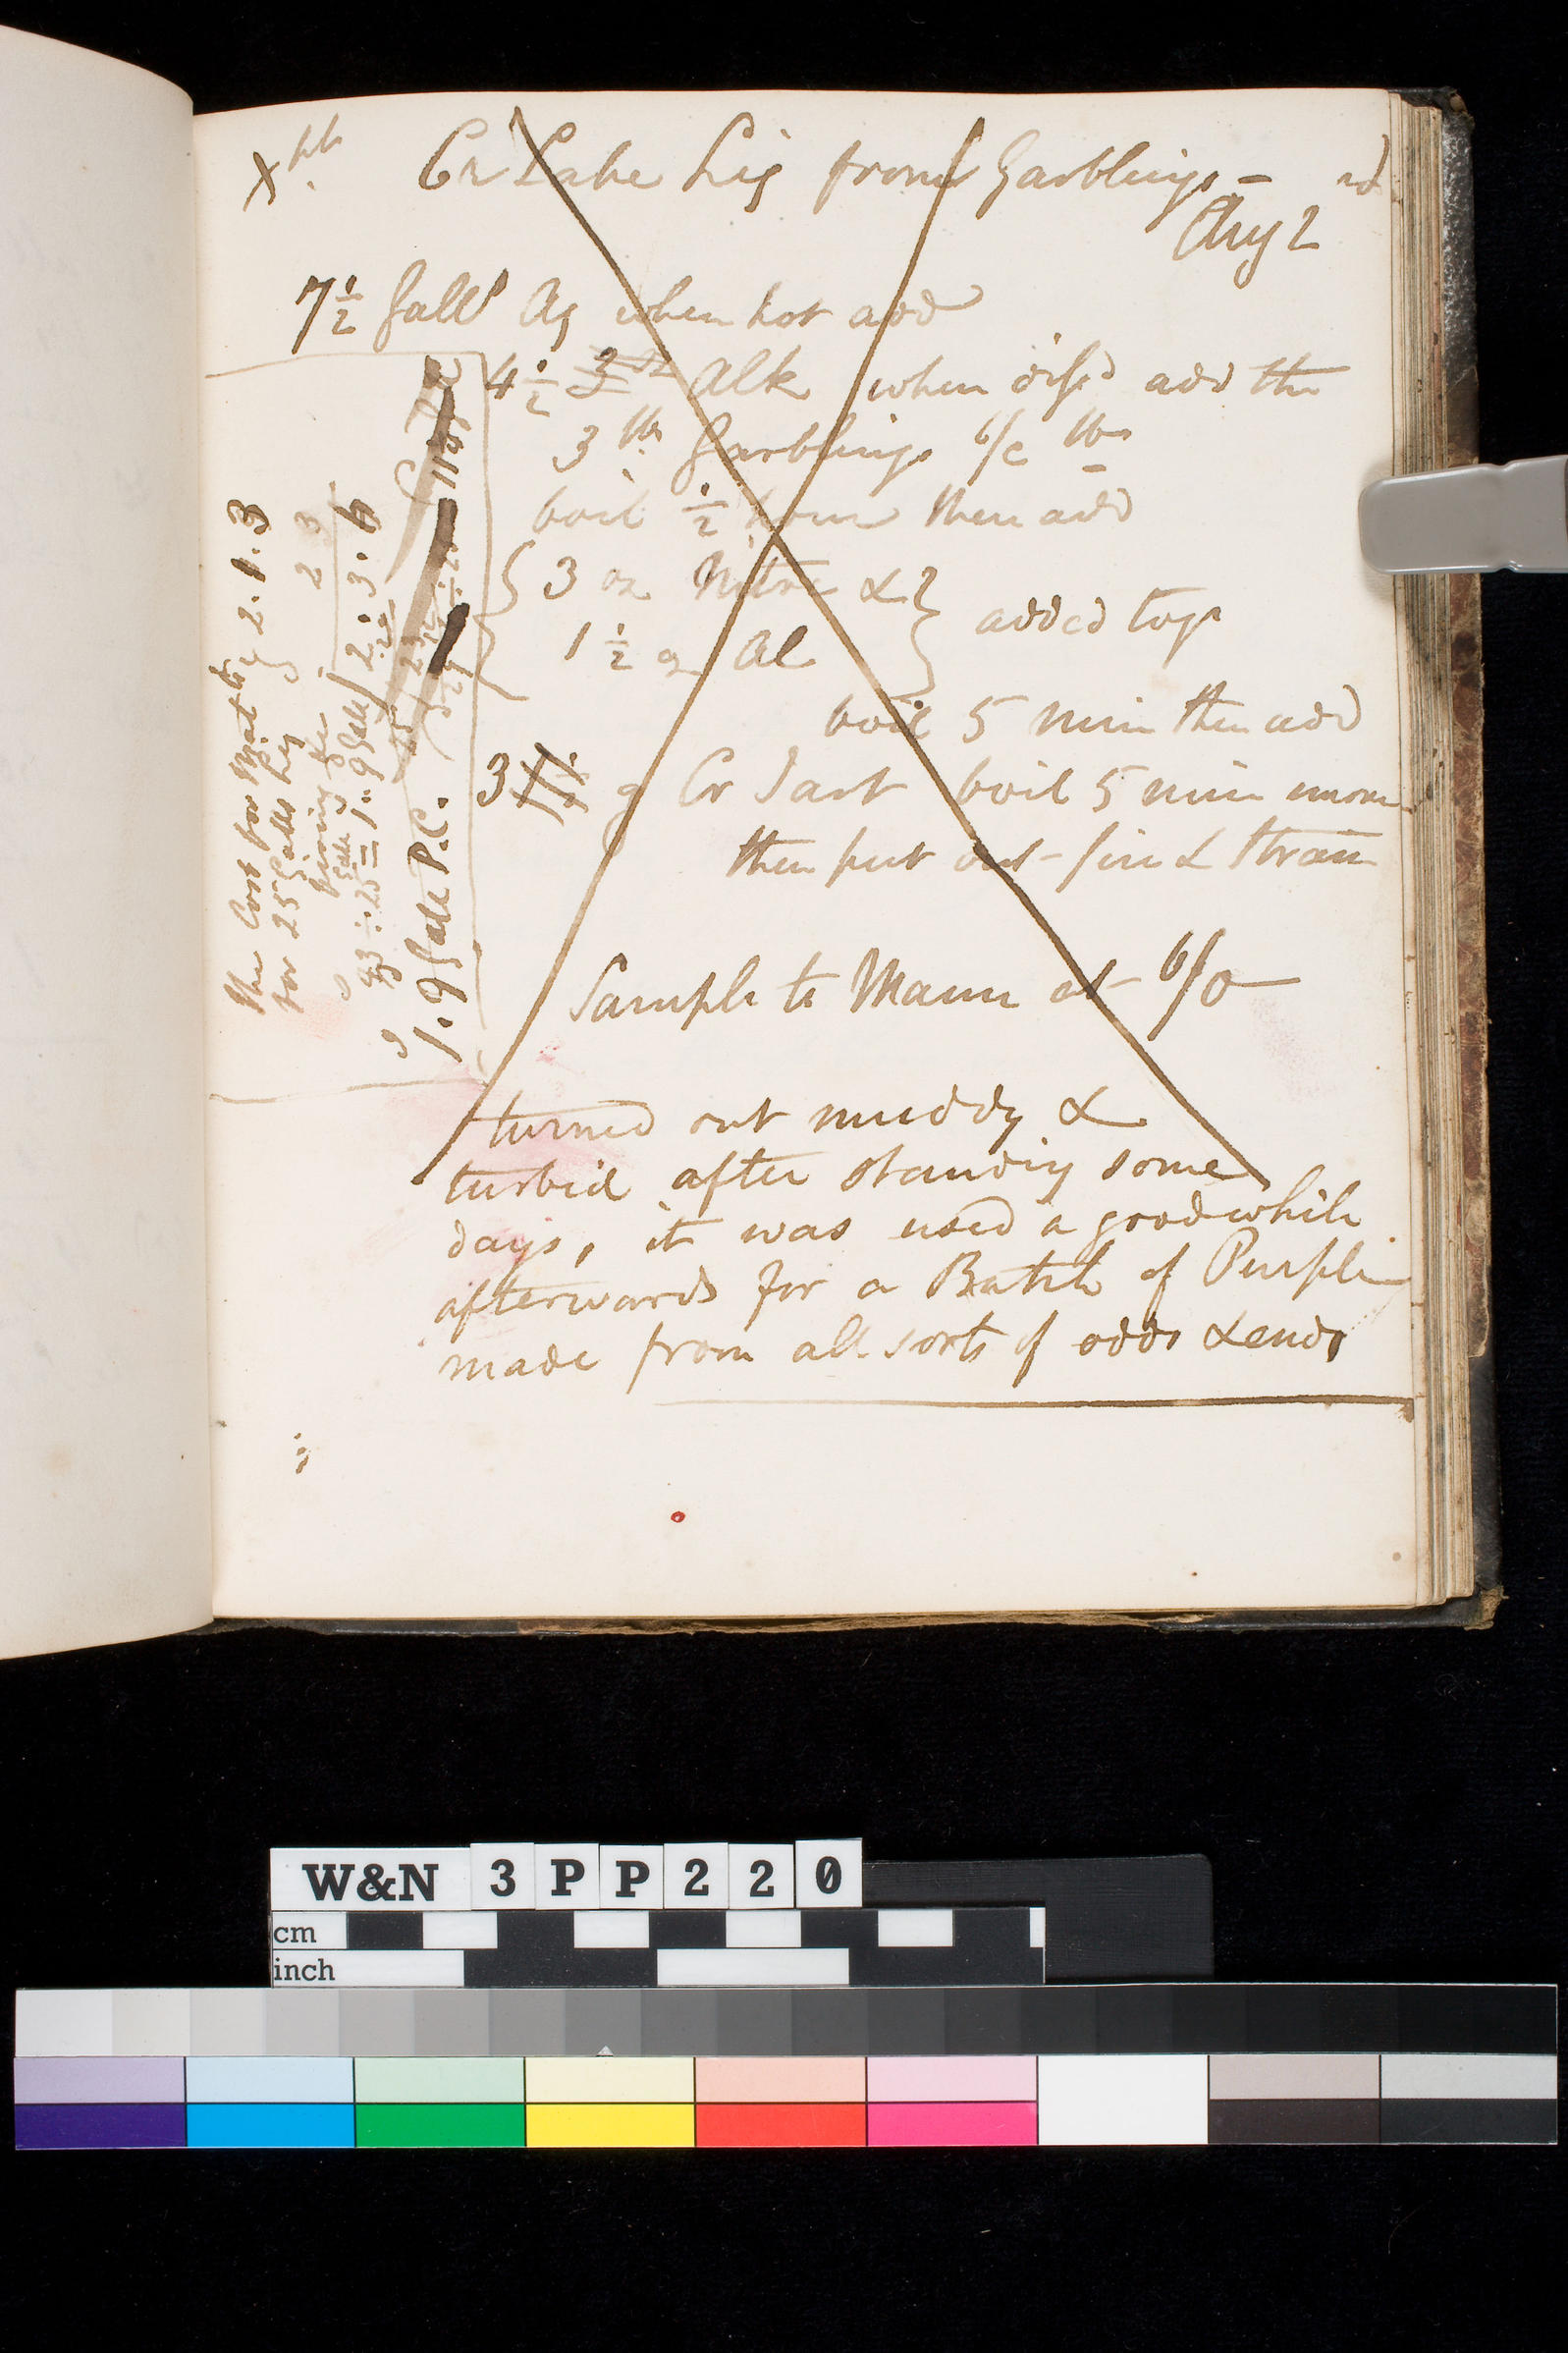 Cr Lake Liq from Garblings -
Aug 2
7 1/2 Galls Aq when hot add
4 1/2 Alk when diss'd add the
3 lbs Garblings 6/c lbs
boil 1/2 hour then add
3 oz Nitre &
1 1/2 oz Al
added togr
boil 5 min then add
3 Cr Tart boil 5 min more
then put out fire & strain
Sample to Mann at 6/0
turned out muddy &
turbid after standing some
days, it was used a good while
afterwards for a Batch of Purple
made from all sorts of odds & ends
the Cost for Mat 2.1.3
for 25 Galls Liq 2 3
2.3.6
÷ 25 = 1.9 Gall
1.9 Gall P.C.
W&N 3PP220
cm
inch